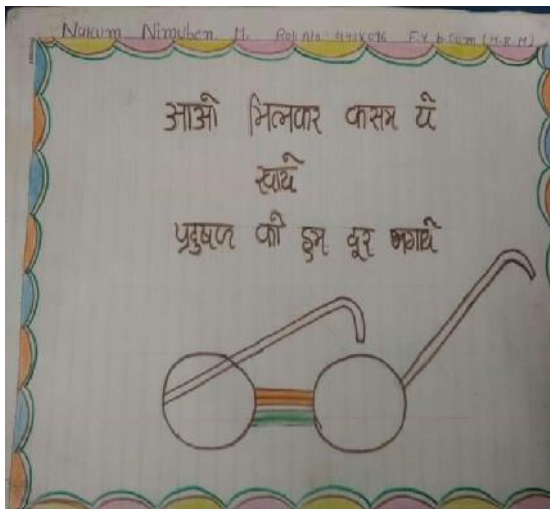 Nakum Nimuben M. Roll No. F.Y. b com (H.R.M)
आओ मिलकर कसम ये
खाये
प्रदुषण को हम दूर भगाये